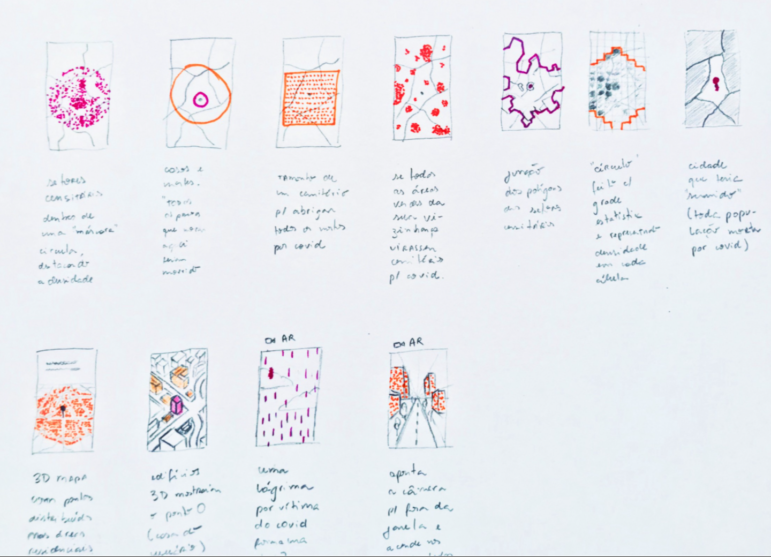 setores
censitários
dentro de
uma "máscara"
circular,
destacando
a densidade
casos e
mortes.
"todos
os pontos
que
aqui
teriam
morrido
tamanho de
um cemitério
p/ abrigar
todos os mortos
por covid
se todas
as áreas
verdes da
sua vi-
zinhança
virassem
cemitério
p/ covid.
junção
dos polígonos
dos setores
censitários
"círculo"
feito c/
grade
estatística
e representando
densidade
em cada
célula
cidade
que teria
"sumido"
(toda popu-
lação morta
por covid)
3D mapa
com pontos
distribuídos
nas áreas
residenciais
edifícios
3D mostrando
o ponto 0
(casa do
usuário)
OU AR
uma
lágrima
por vítima
do covid
forma uma
OU AR
aponta
a câmera
p/ fora da
janela e
acende os